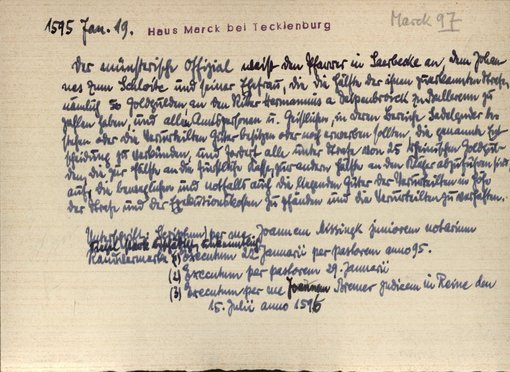 1595 Jan. 19. Haus Marck bei Tecklenburg Marck 97
Der münsterische Offizial weist den Pfarrer in Saerbecke an, dem Johan
nes zum Schlode und seiner Ehefrau, die die Hälfte der ihnen zuerkannten Strafe,
nämlich 50 Goldgulden an den Ritter Hermannus a Velpenbroick zu
zahlen haben, und allen Amtspersonen u. Geistlichen, in deren Bereiche
oder die Verurteilten Güter besitzen oder noch erwerben sollten, die genannte Ent
scheidung zu verkünden, und fordert alle unter Strafe von 25 rheinischen Goldgul
den, die zur Hälfte an die fürstliche Kasse, zur andern Hälfte an den Kläger abzuführen sind,
auf, die beweglichen und notfalls auch die liegenden Güter der Verurteilten in Höhe
der Strafe und der Exekutionskosten zu pfänden und die Verurteilten zu verhaften.
Unterschrift: Scriptum per me Joannem juniorem notarium
(1) Executum 22 Januarii per pastorem anno 95.
(2) Executum per pastorem 29. Januarii
(3) Executum per me Joannem Bremer judicem in Reine den
15. Julii anno 1596